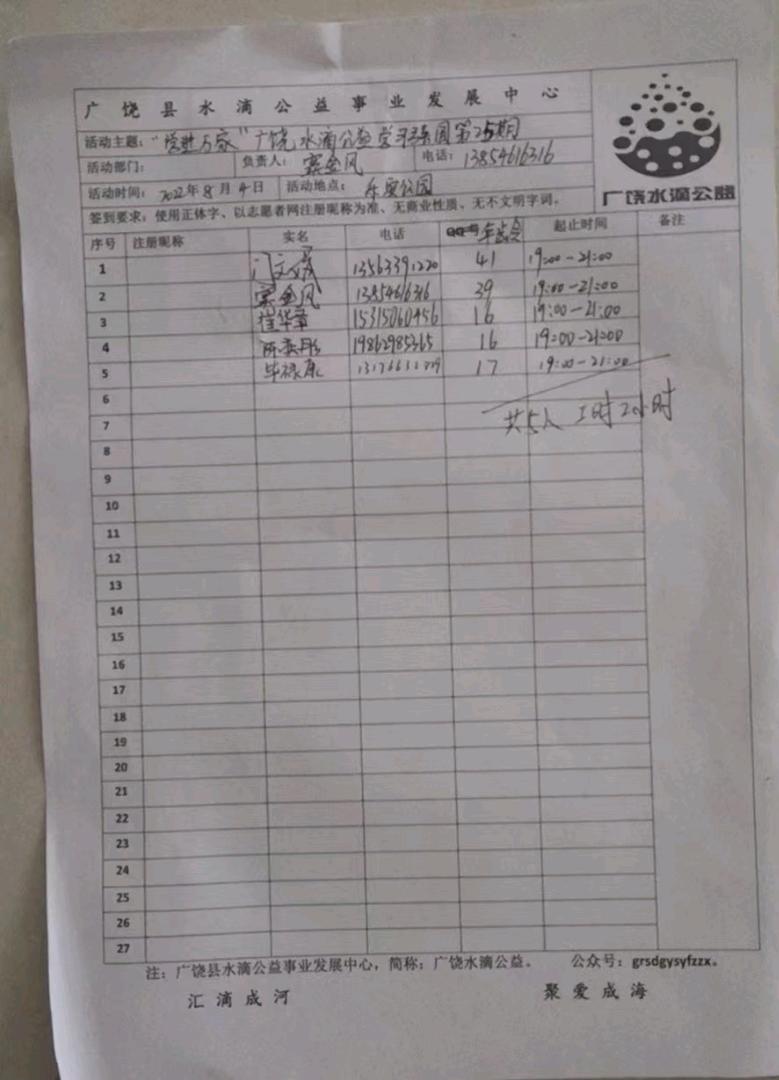 广饶县水滴公益事业发展中心
活动主题："爱进万家"广饶水滴公益学习乐园第25期
活动部门： 负责人：窦金凤 电话：13854616316
活动时间：2022年8月4日 活动地点：乐安公园
广饶水滴公益
签到要求：使用正体字、以志愿者网注册昵称为准、无商业性质、无不文明字词。
序号 注册昵称 实名 电话 年龄 起止时间 备注
1 41 19:00-21:00
2 窦金凤 13854616316 39 19:00-21:00
3 崔华章 15315060456 16 19:00-21:00
4 19862985365 16 19:00-21:00
5 毕禄康 17 19:00-21:00
6
共5人 工时2小时
7
8
9
10
11
12
13
14
15
16
17
18
19
20
21
22
23
24
25
26
27
注：广饶县水滴公益事业发展中心，简称：广饶水滴公益。 公众号：grsdgysyfzzx。
汇滴成河 聚爱成海